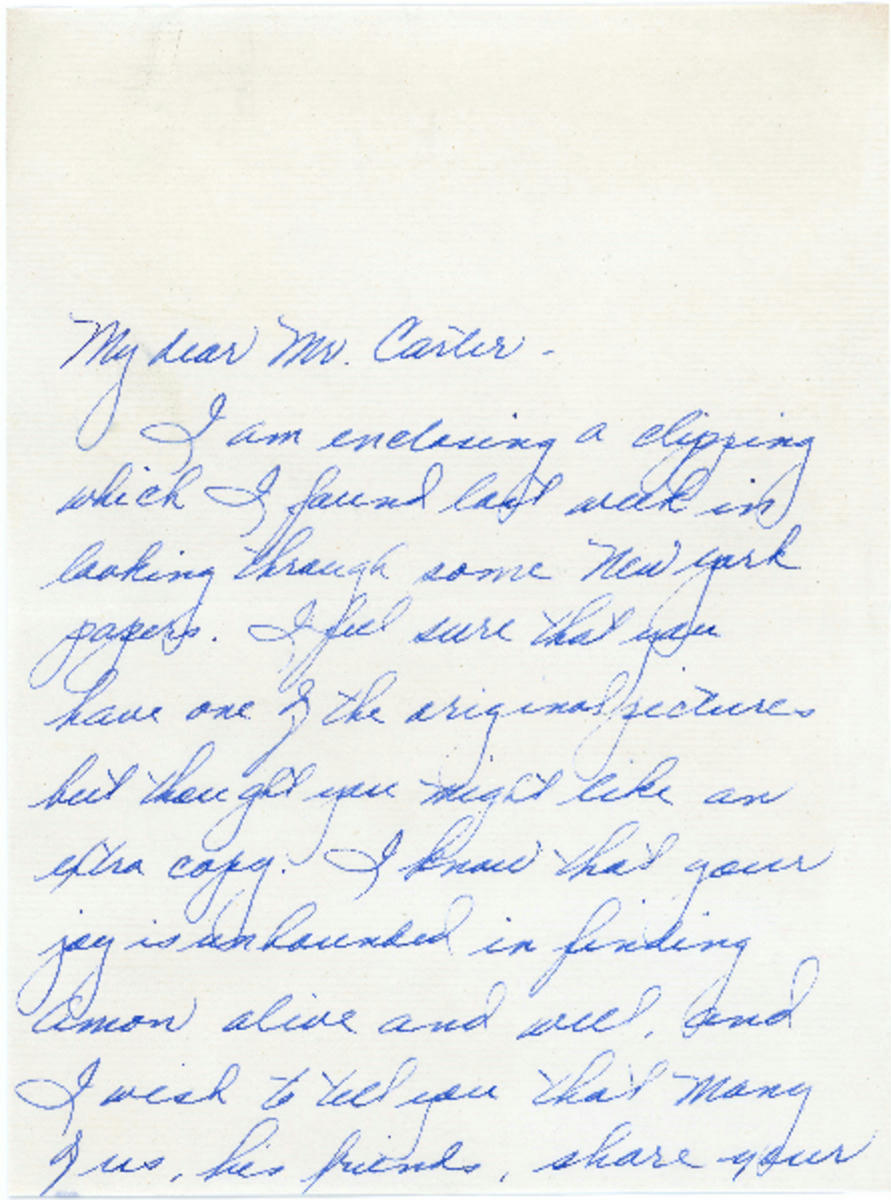 My dear Mr. Carter -
I am enclosing a clipping
which I found last week in
looking through some New York
papers. I feel sure that you
have one of the original pictures
but thought you might like an
extra copy. I know that your
joy is unbounded in finding
Amon alive and well, and
I wish to tell you that many
of us, his friends, share your